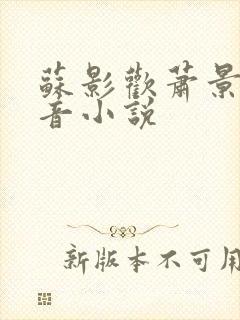 蘇影歡蕭景
音小說
新版本不可用